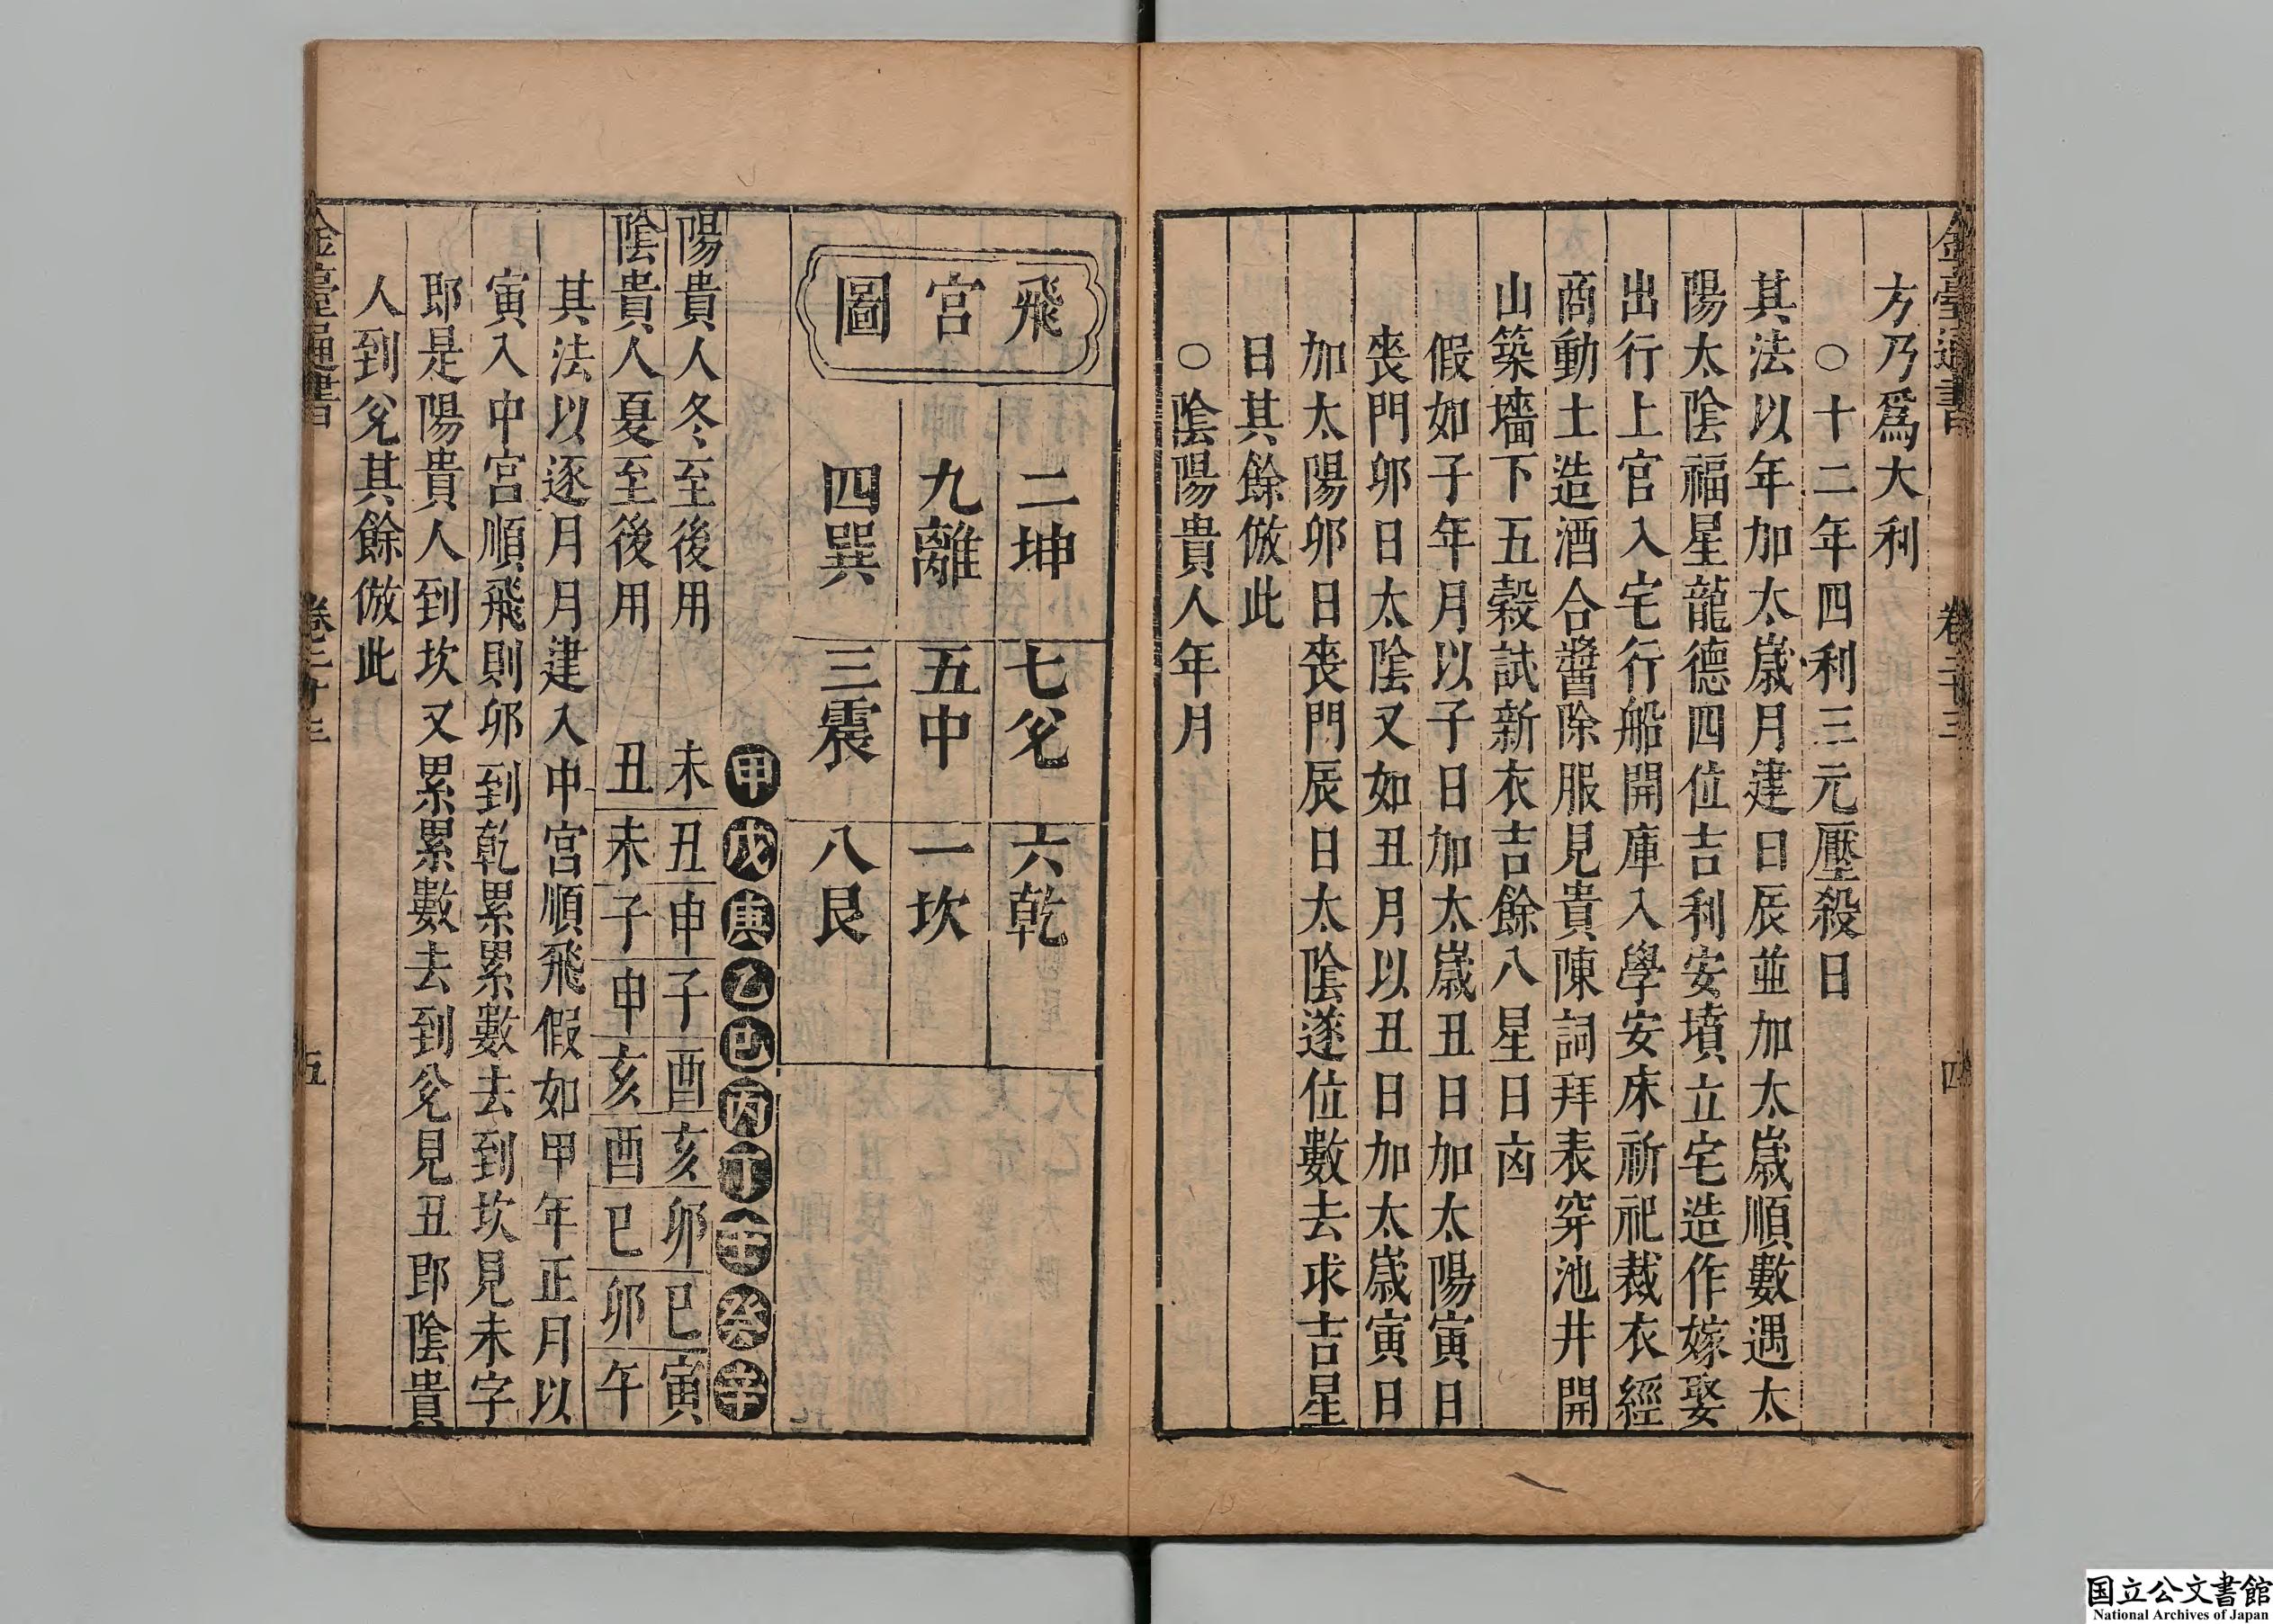 金臺通書 卷二十三 四
方乃爲大利
○十二年四利三元壓殺日
其法以年加太歲月建日辰並加太歲順數遇太
陽太陰福星龍德四位吉利安墳立宅造作嫁娶
出行上官入宅行船開庫入學安床祈祀裁衣經
商動土造酒合醬除服見貴陳詞拜表穿池井開
山築墻下五穀試新衣吉餘八星日凶
假如子年月以子日加太歲丑日加太陽寅日
喪門卯日太陰又如丑月以丑日加太歲寅日
加太陽卯日喪門辰日太陰遂位數去求吉星
日其餘倣此
○陰陽貴人年月
飛宮圖
二坤 七兌 六乾
九離 五中 一坎
四巽 三震 八艮
甲戊庚乙己丙丁壬癸辛
陽貴人冬至後用 未丑申子酉亥卯巳寅
陰貴人夏至後用 丑未子申亥酉巳卯午
其法以逐月月建入中宮順飛假如甲年正月以
寅入中宮順飛則卯到乾累累數去到坎見未字
即是陽貴人到坎又累累數去到兌見丑即陰貴
人到兌其餘倣此
金臺通書 卷二十三 五
国立公文書館
National Archives of Japan